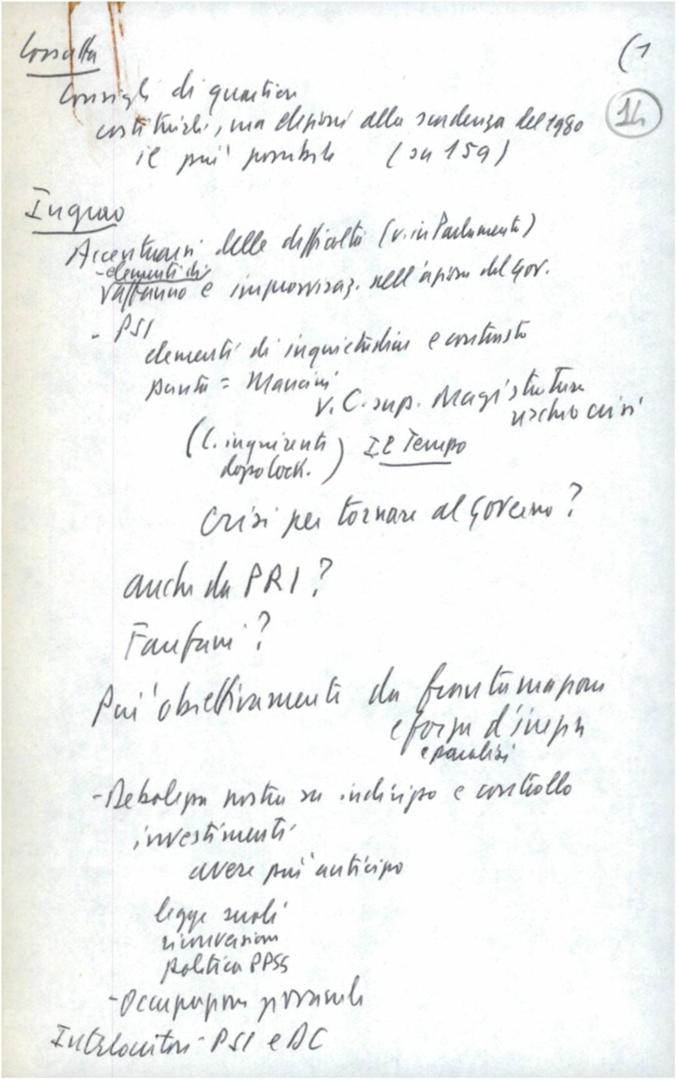 Cossutta
(1
14
Consigli di quartiere
costituirli, ma elezioni alla scadenza del 1980
il più possibile (su 159)
Ingrao
Accentuarsi delle difficoltà (v. in Parlamento)
- elementi di
raffanno e improvvisaz. nell'azione del gov.
- PSI
elementi di inquietudine e contrasto
punta = Mancini
v. C. sup. Magistratura
rischio crisi
(C. inquirente
dopo lock.) Il Tempo
Crisi per tornare al governo?
anche da PRI?
Fanfani?
Più obiettivamente da frantumazione
e forza d'inerzia
e paralisi
- Debolezza nostra su indirizzo e controllo
investimenti
avere più anticipo
legge suoli
riconversione
politica PPSS
- Occupazione giovanile
Interlocutori - PSI e DC